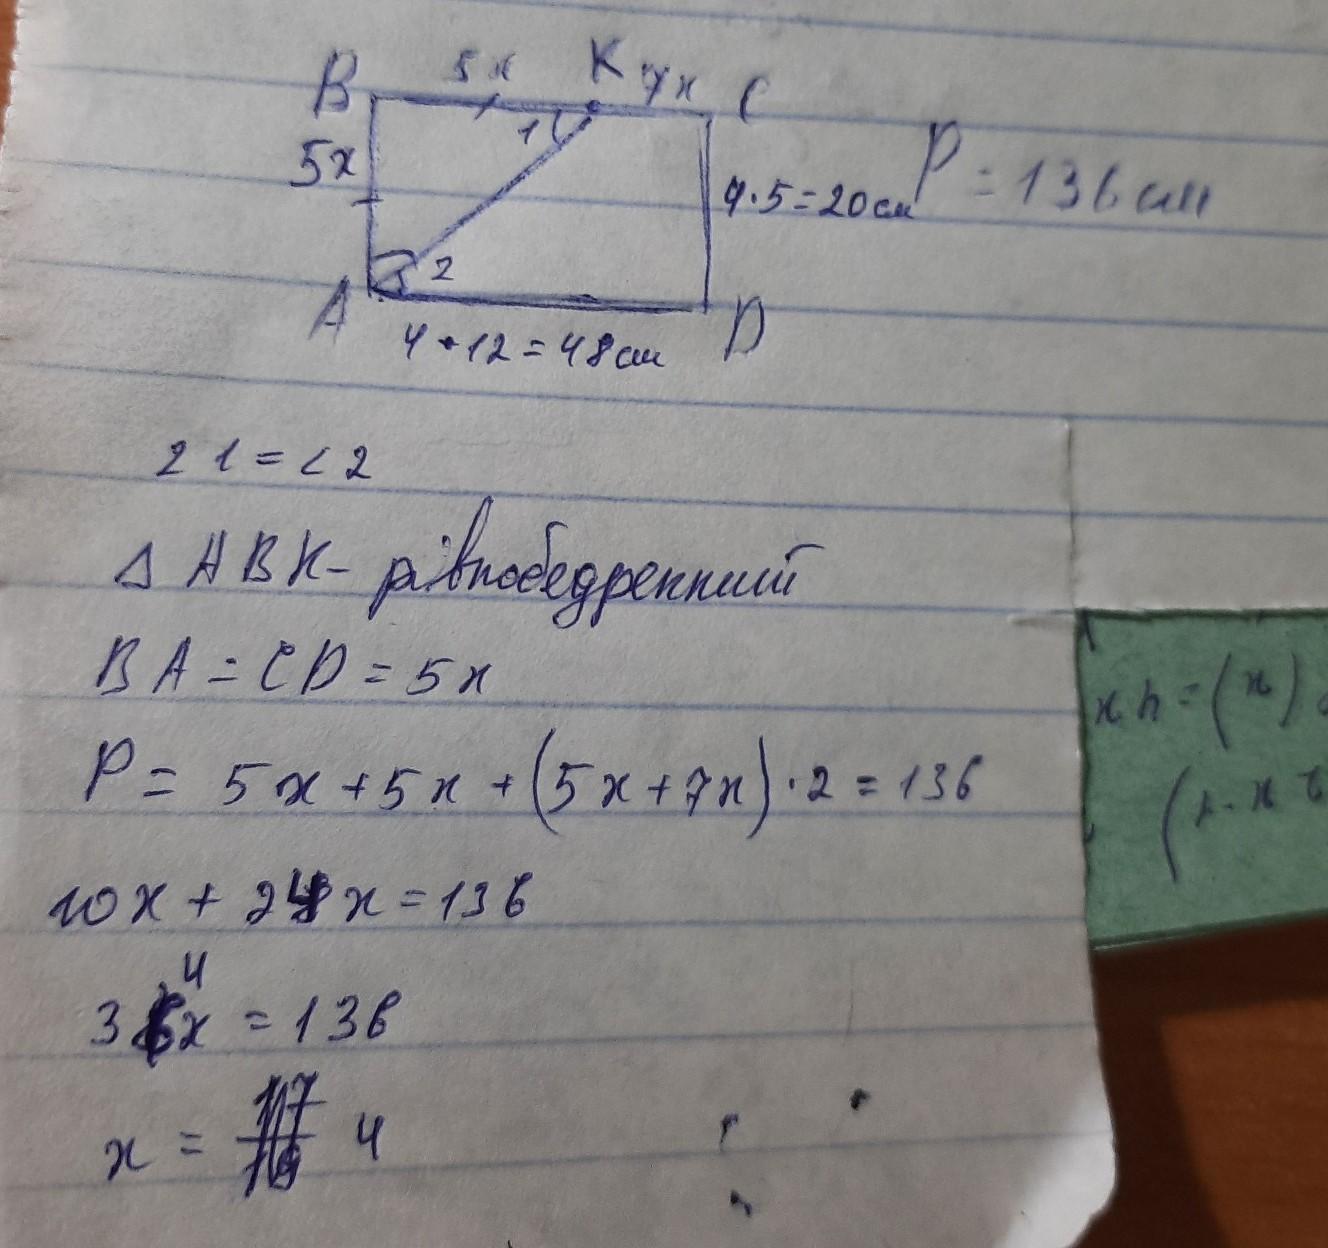 B 5x K 7x C
1
5x
4·5=20см
P = 136см
2
A D
4·12=48см
∠1=∠2
Δ ABK- рівнобедренний
BA = CD = 5x
P = 5x+5x+(5x+7x)·2=136
10x + 24x = 136
34x = 136
x = 4